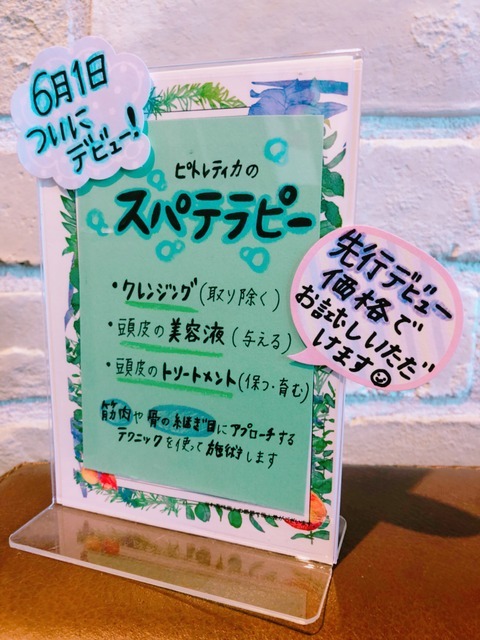 6月1日
ついに
デビュー!
ピトレティカの
スパテラピー
・クレンジング(取り除く)
・頭皮の美容液(与える)
・頭皮のトリートメント(保つ・育む)
筋肉や骨の継ぎ目にアプローチする
テクニックを使って施術します
先行デビュー
価格で
お試しいただ
けます